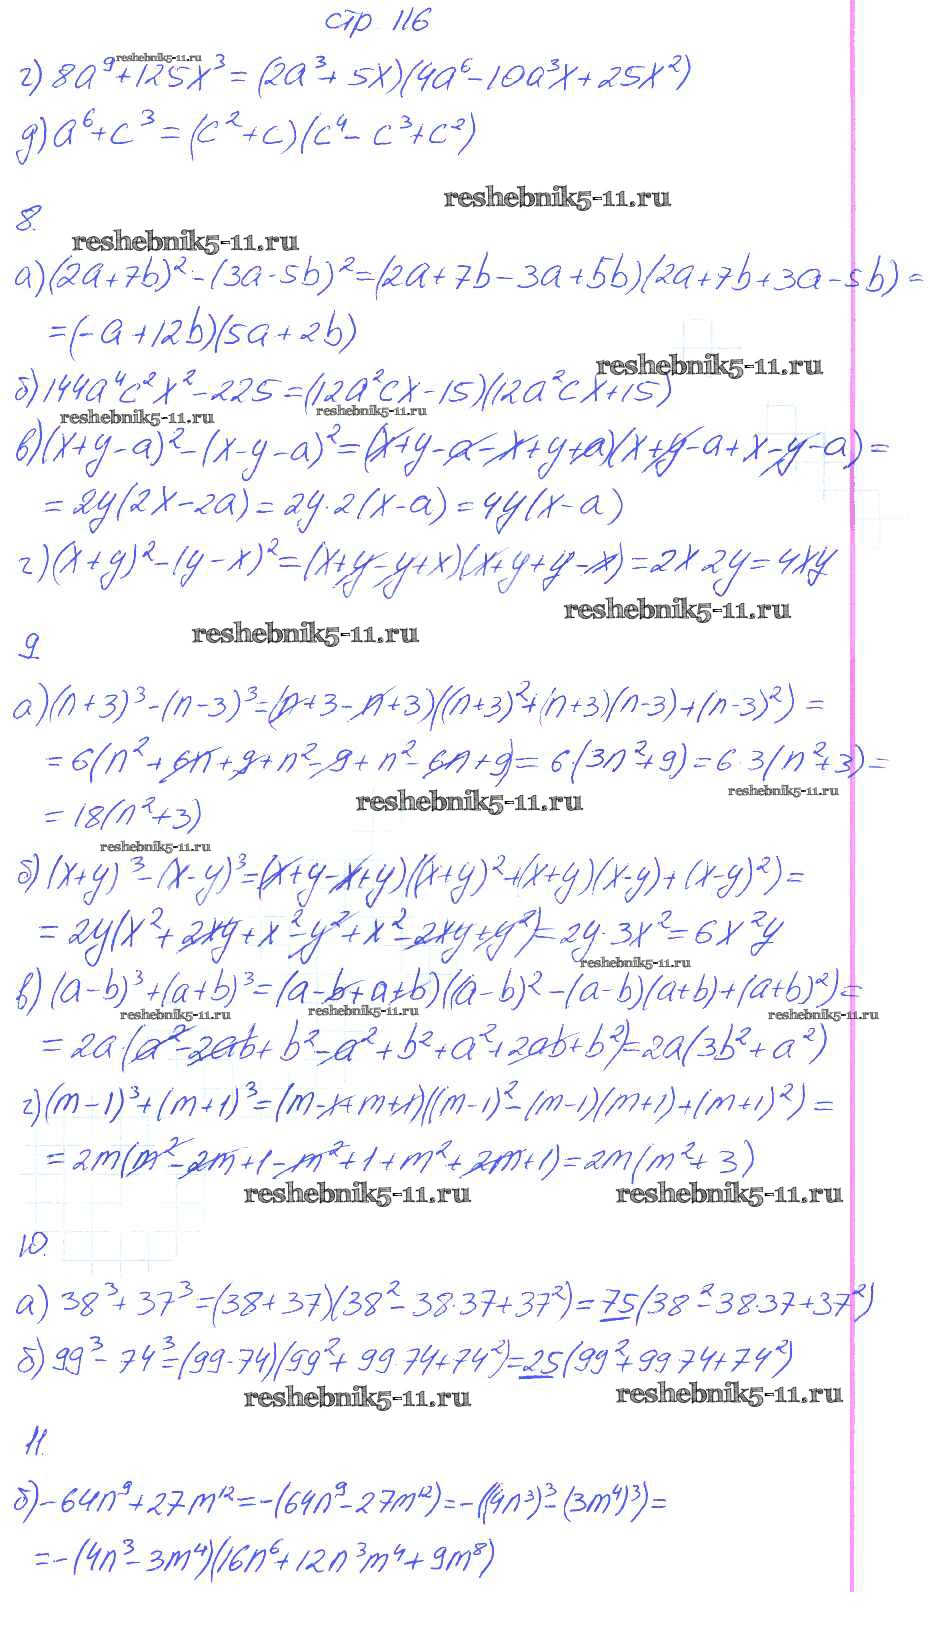 стр 116
г) 8a⁹+125x³=(2a³+5x)(4a⁶-10a³x+25x²)
reshebnik5-11.ru
д) a⁶+c³=(c²+c)(c⁴-c³+c²)
reshebnik5-11.ru
8.
reshebnik5-11.ru
а) (2a+7b)²-(3a-5b)²=(2a+7b-3a+5b)(2a+7b+3a-5b)=
=(-a+12b)(5a+2b)
reshebnik5-11.ru
б) 144a⁴c²x²-225=(12a²cx-15)(12a²cx+15)
reshebnik5-11.ru reshebnik5-11.ru
в) (x+y-a)²-(x-y-a)²=(x+y-a-x+y+a)(x+y-a+x-y-a)=
=2y(2x-2a)=2y·2(x-a)=4y(x-a)
г) (x+y)²-(y-x)²=(x+y-y+x)(x+y+y-x)=2x·2y=4xy
reshebnik5-11.ru
reshebnik5-11.ru
9
а) (n+3)³-(n-3)³=(n+3-n+3)((n+3)²+(n+3)(n-3)+(n-3)²)=
=6(n²+6n+9+n²-9+n²-6n+9)=6·(3n²+9)=6·3(n²+3)=
reshebnik5-11.ru reshebnik5-11.ru
=18(n²+3)
reshebnik5-11.ru
б) (x+y)³-(x-y)³=(x+y-x+y)((x+y)²+(x+y)(x-y)+(x-y)²)=
=2y(x²+2xy+x²-y²+x²-2xy+y²)=2y·3x²=6x²y
reshebnik5-11.ru
в) (a-b)³+(a+b)³=(a-b+a+b)((a-b)²-(a-b)(a+b)+(a+b)²)=
reshebnik5-11.ru reshebnik5-11.ru reshebnik5-11.ru
=2a·(a²-2ab+b²-a²+b²+a²+2ab+b²)=2a(3b²+a²)
г) (m-1)³+(m+1)³=(m-1+m+1)((m-1)²-(m-1)(m+1)+(m+1)²)=
=2m(m²-2m+1-m²+1+m²+2m+1)=2m(m²+3)
reshebnik5-11.ru reshebnik5-11.ru
10.
а) 38³+37³=(38+37)(38²-38·37+37²)=75(38²-38·37+37²)
б) 99³-74³=(99-74)(99²+99·74+74²)=25(99²+99·74+74²)
reshebnik5-11.ru reshebnik5-11.ru
11.
б) -64n⁹+27m¹²=-(64n⁹-27m¹²)=-((4n³)³-(3m⁴)³)=
=-(4n³-3m⁴)(16n⁶+12n³m⁴+9m⁸)